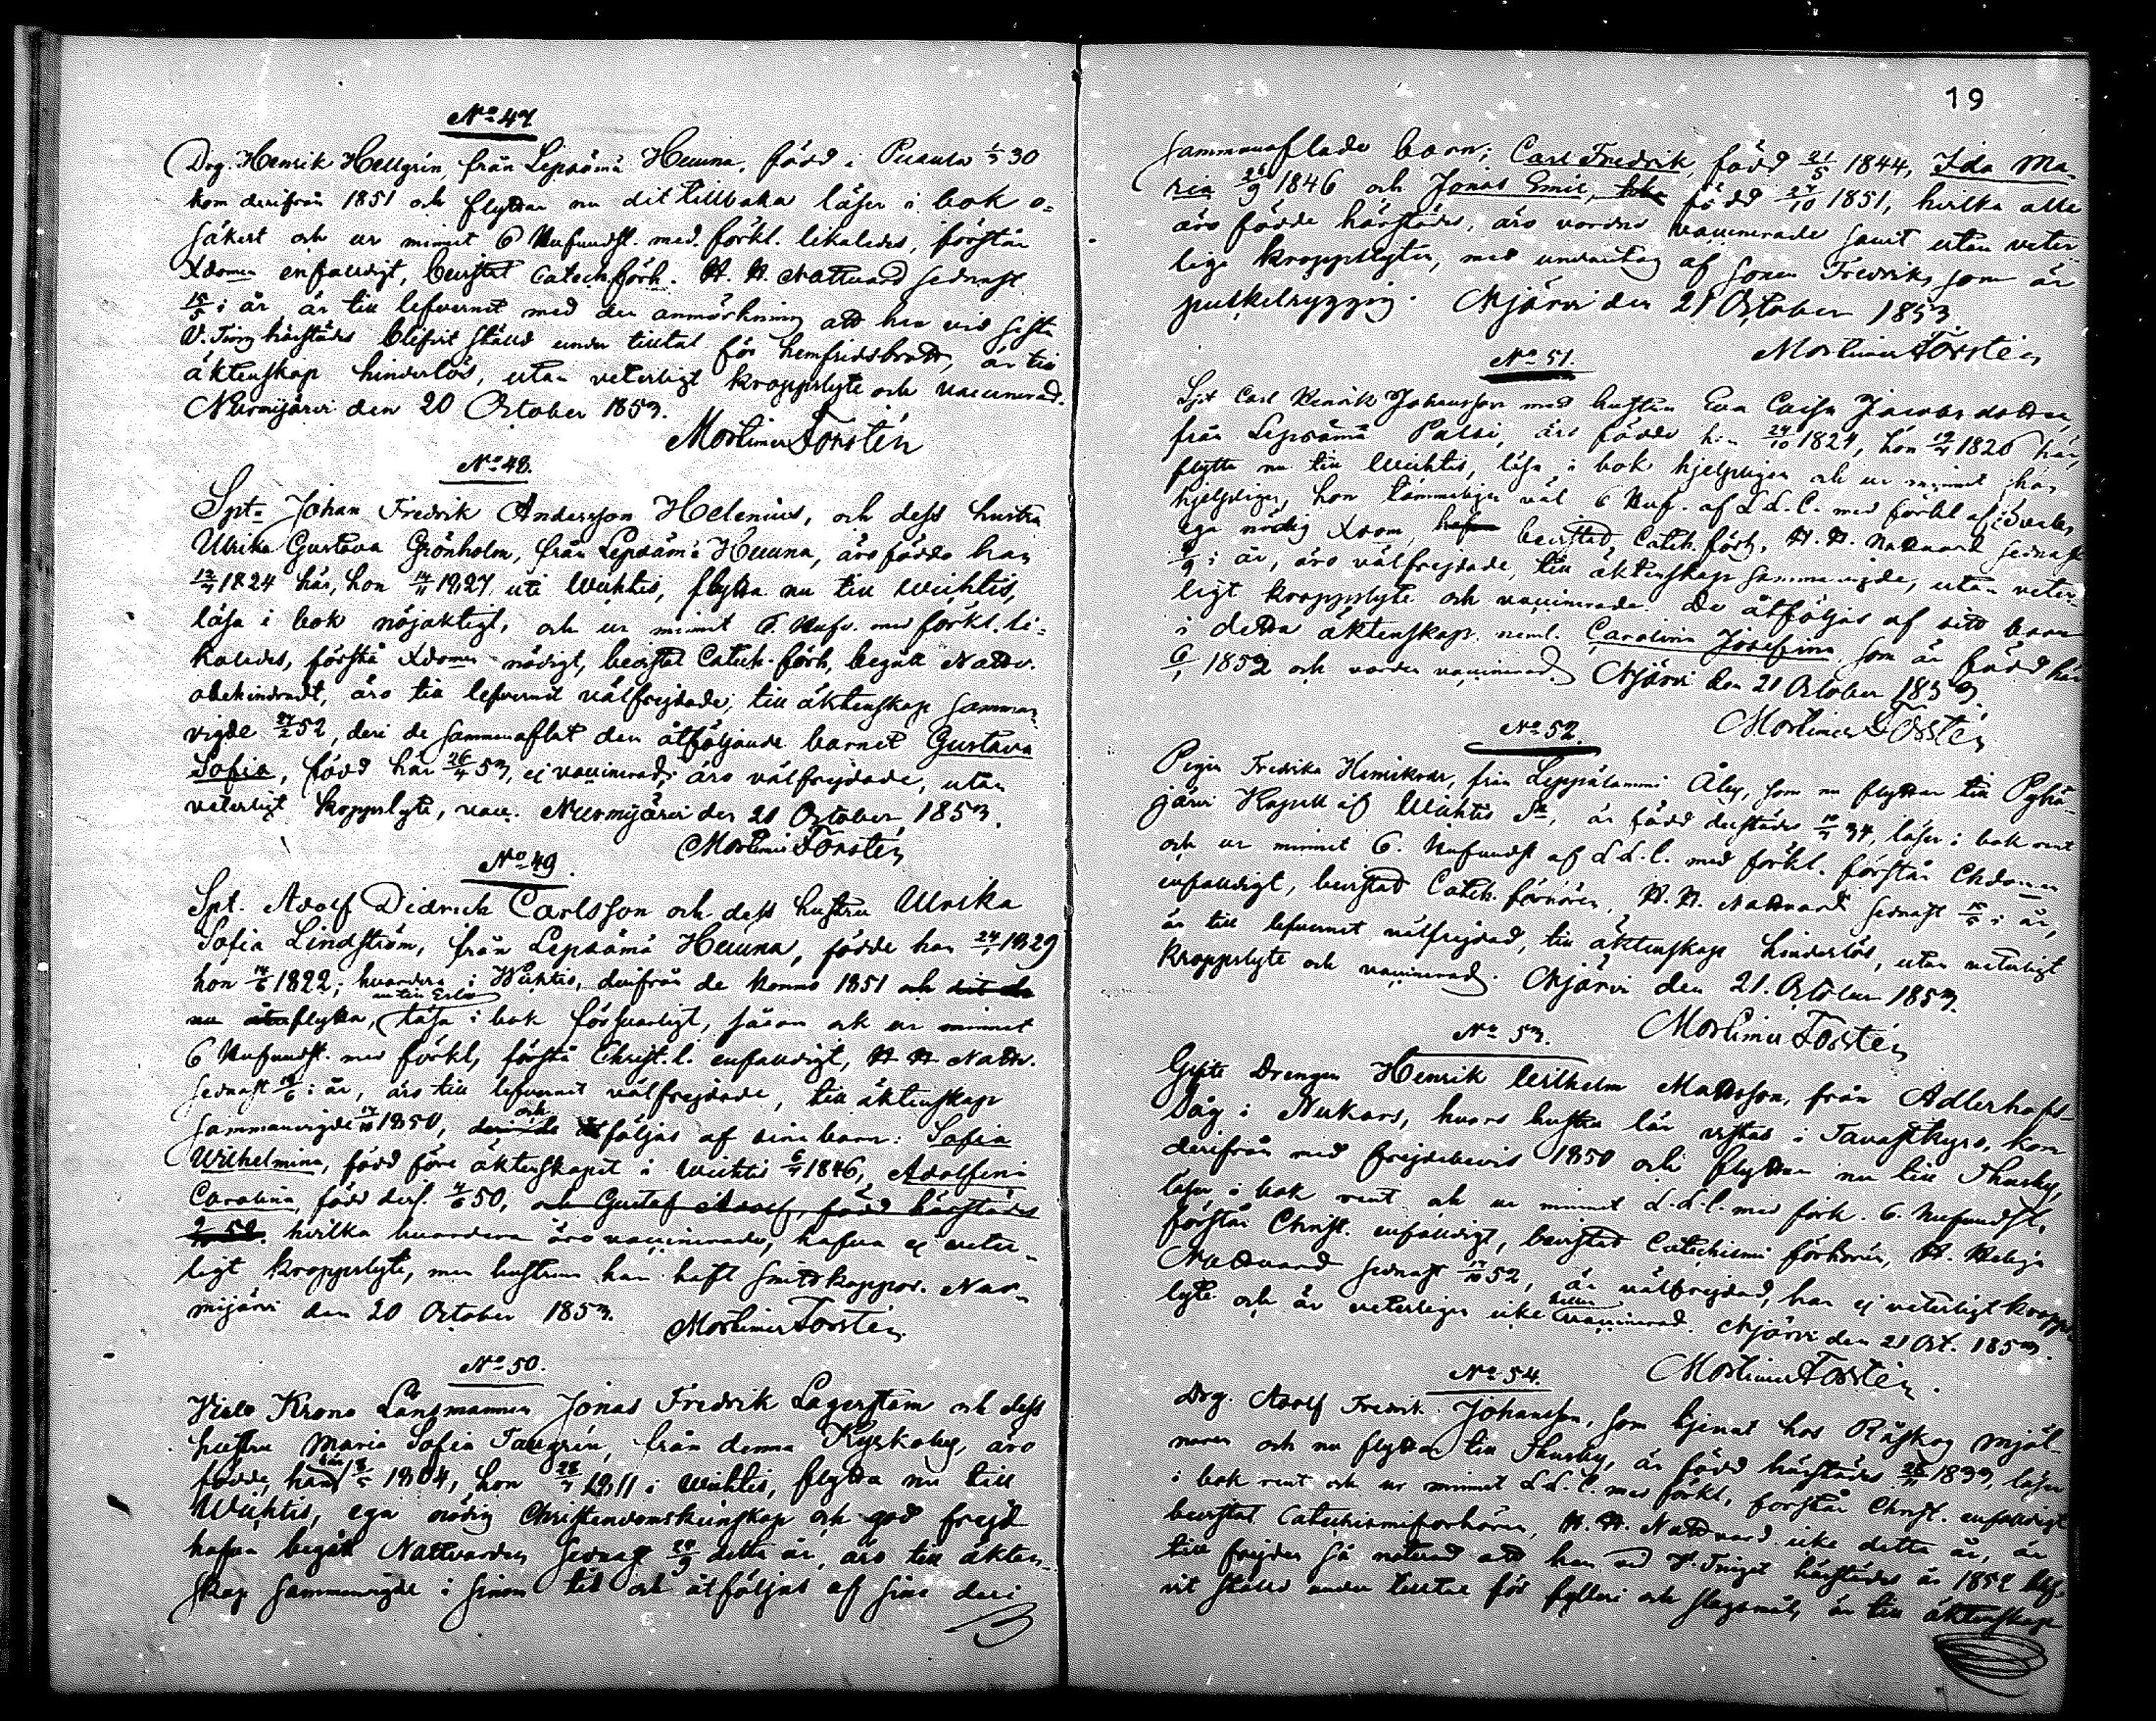 No 47
Drg. Henrik Hellgrén, från Lepsämä Huuna, född i Pusula 30
kom derifrån 1851 och flyttar nu dit tillbaka läser i bok o-
säkert och ur minnet 6 Hufvudst. med förkl. likaledes, förstår
Xdomen enfaldigt, bevistat Catech.förh. H. H. Nattvard sednast
15/5 i år, är till lefvernet med den anmärkning att han vid sista
V. Ting härstädes blifvit ställd under tilltal för hemfridsbrott, är till
äktenskap hinderlös, utan veterligt kroppslyte och vaccinerad.
Nurmijärvi den 20 October 1853.
Mortimer Forstén
No 48.
Spt. Johan Fredrik Andersson Helenius, och dess hustru
Ulrika Gustava Grönholm, från Lepsämä Huuna, äro födda han
1824 här, hon 14/11 1827 uti Wichtis, flytta nu till Wichtis,
läsa i bok nöjaktigt, och ur minnet 6. Hufv. med förkl. li-
kaledes, förstå Xdomen nödigt, bevistat Catech. förh, begått Nattv.
obehindradt, äro till lefvernet välfrejdade, till äktenskap samman-
vigde 52, deri de sammanaflat den åtföljande barnet Gustava
Sofia, född här 26/4 53, ej vaccinerad; äro välfrejdade, utan
veterligt kroppslyte, vacc. Nurmijärvi den 21 October 1853.
Mortimer Forstén
No 49.
Spt. Adolf Didrick Carlsson och dess hustru Ulrika
Sofia Lindström, från Lepsämä Huuna, födde han 1829
hon 1822; hvardera i Wichtis, derifrån de kommo 1851 och dit de
nu åter flytta, läsa i bok försvarligt, såsom ock ur minnet
6 Hufvudst. med förkl, förstå Christ.l. enfaldigt, H. H. Nattv.
sednast i år, äro till lefvernet välfrejdade, till äktenskap
sammanvigde 1850, deri de och åtföljas af sina barn: Sofia
Wilhelmina, född före äktenskapet i Wichtis 1846, Adolfina
Carolina, född ders. 50, och Gustaf Adolf, född härstädes
52. hvilka hvardera äro vaccinerade, hafva ej veter-
ligt kroppslyte, men hustrun har haft smittkoppor. Nur-
mijärvi den 20 October 1853.
Mortimer Forstén.
No 50.
Krono Länsmannen Jonas Fredrik Lagerstam och dess
hustru Maria Sofia Taugrén, från denna Kyrkoby, äro
födde, han 1804, hon 28 1811 i Wichtis, flytta nu till
Wichtis, ega nödig Christendomskunskap och god frejd
hafva begått Nattvarden sednast detta år, äro till äkten-
skap sammanvigde i sinom tid och åtföljas af sine deri
19
sammanaflade barn; Carl Fredrik, född 21/5 1844, Ida Ma-
ria 1846 och Jonas Emil, född 27/10 1851, hvilka alla
äro födde härstädes, äro vordne vaccinerade samt utan veter
lige kroppslyten, med undantag af sonen Fredrik, som är
puckelryggig. Njärvi den 21 October 1853
Mortimer Forstén
No 51.
Spt Carl Henrik Johansson med hustru Eva Caisa Jacobsdotter,
från Lepsämä Passi, äro födde han 24/10 1824, hon 1826 här,
flytta nu till Wichtis, läsa i bok hjelpligen och ur minnet han
hjelpligen, hon temmeligen väl 6 Huf. af L.L.C. med förkl.
ega nödig Xdom, hafva bevistad Catech. förh, H. H. Nattvard sednast
i år, äro välfrejdade, till äktenskap sammanvigde, utan veter-
ligt kroppslyte och vaccinerade. De åtföljas af sitt barn
i detta äktenskap neml. Carolina Josefina som är född här
1852 och vorden vaccinerad. Njärvi den 21 October 1853.
Mortimer Forstén
No 52.
Pigan Fredrika Henriksdr, från Leppälammi Åby, som nu flyttar till Pyhä-
järvi Kapell af Wichtis Sn, är född derstädes 34, läser i bok rent
och ur minnet 6. Hufvudst af L.L.C. med förkl. förstår Chdomen
enfaldigt, bevistad Catech. förhören, H. H. Nattvard sednast i år,
är till lefvernet välfrejdad, till äktenskap hinderlös, utan veterligt
kroppslyte och vaccinerad. Njärvi den 21. October 1853.
Mortimer Forstén
No 53.
Gifte Drengen Henrik Wilhelm Mattsson, från Adlerhofs-
såg i Nukars, hvars hustru lär vistas i Tavastkyro, kom
derifrån med frejdebevis 1850 och flyttar nu till Thusby,
läser i bok rent och ur minnet L.L.C. med förk. 6. Hufvudst.
förstår Christ. enfaldigt, bevistad Catechismi förhören, H. Heliga
Nattvard sednast 52, är välfrejdad, har ej veterligt kropps-
lyte och är veterligen icke heller vaccinerad. Njärvi den 21 Oct. 1853.
Mortimer Forstén.
No 54.
Drg. Adolf Fredrik Johansson, som tjenat hos Råskog mjöl-
naren och nu flyttar till Thusby, är född härstädes 1833, läser
i bok rent och ur minnet L.L.C. med förkl, förstår Christ. enfaldigt
bevistat Catechismiförhören, H. H. Nattvard icke detta år, är
till frejden så noterad att han vid V. Tinget härstädes år 1852 blif-
vit ställd under tilltal för fylleri och slagsmål, är till äktenskap